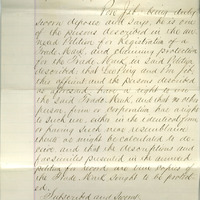 being duly
sworn deposes and says, he is one
of the persons described in the an-
nexed Petition for Registration of a
Trade Mark and obtaining Protection
for the Trade Mark, in said Petition
described, that he
this affiant and the persons described
as aforesaid, have a right to use
the said Trade Mark, and that no other
person, firm or Corporation has a right
to such use, either in the identical form
or having such near resemblance
thereto as might be calculated to de-
ceive and that the descriptions and
facsimiles presented in the annexed
petition for record are true copies of
the Trade Mark sought to be protect-
ed.
Subscribed and sworn